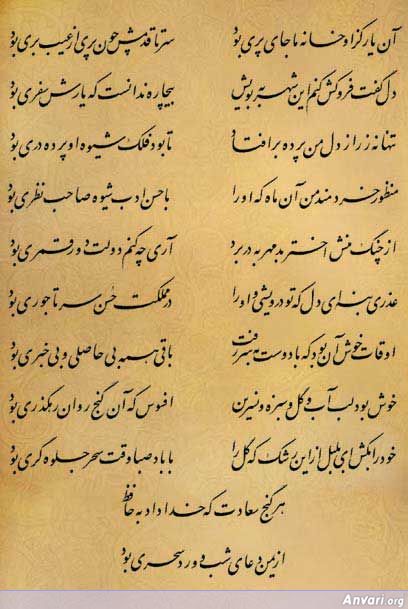 آن یار کز او خانه ما جای پری بود سر تا قدمش چون پری از عیب بری بود
دل گفت فروکش کنم این شهر به بویش بیچاره ندانست که یارش سفری بود
تنها نه ز راز دل من پرده برافتاد تا بود فلک شیوه او پرده دری بود
منظور خردمند من آن ماه که او را با حسن ادب شیوه صاحب نظری بود
از چنگ منش اختر بدمهر به در برد آری چه کنم دولت دور قمری بود
عذری بنه ای دل که تو درویشی و او را در مملکت حسن سر تاجوری بود
اوقات خوش آن بود که با دوست به سر رفت باقی همه بی حاصلی و بی خبری بود
خوش بود لب آب و گل و سبزه و نسرین افسوس که آن گنج روان رهگذری بود
خود را بکش ای بلبل از این رشک که گل را با باد صبا وقت سحر جلوه گری بود
هر گنج سعادت که خدا داد به حافظ
از یمن دعای شب و ورد سحری بود
Anvari.org